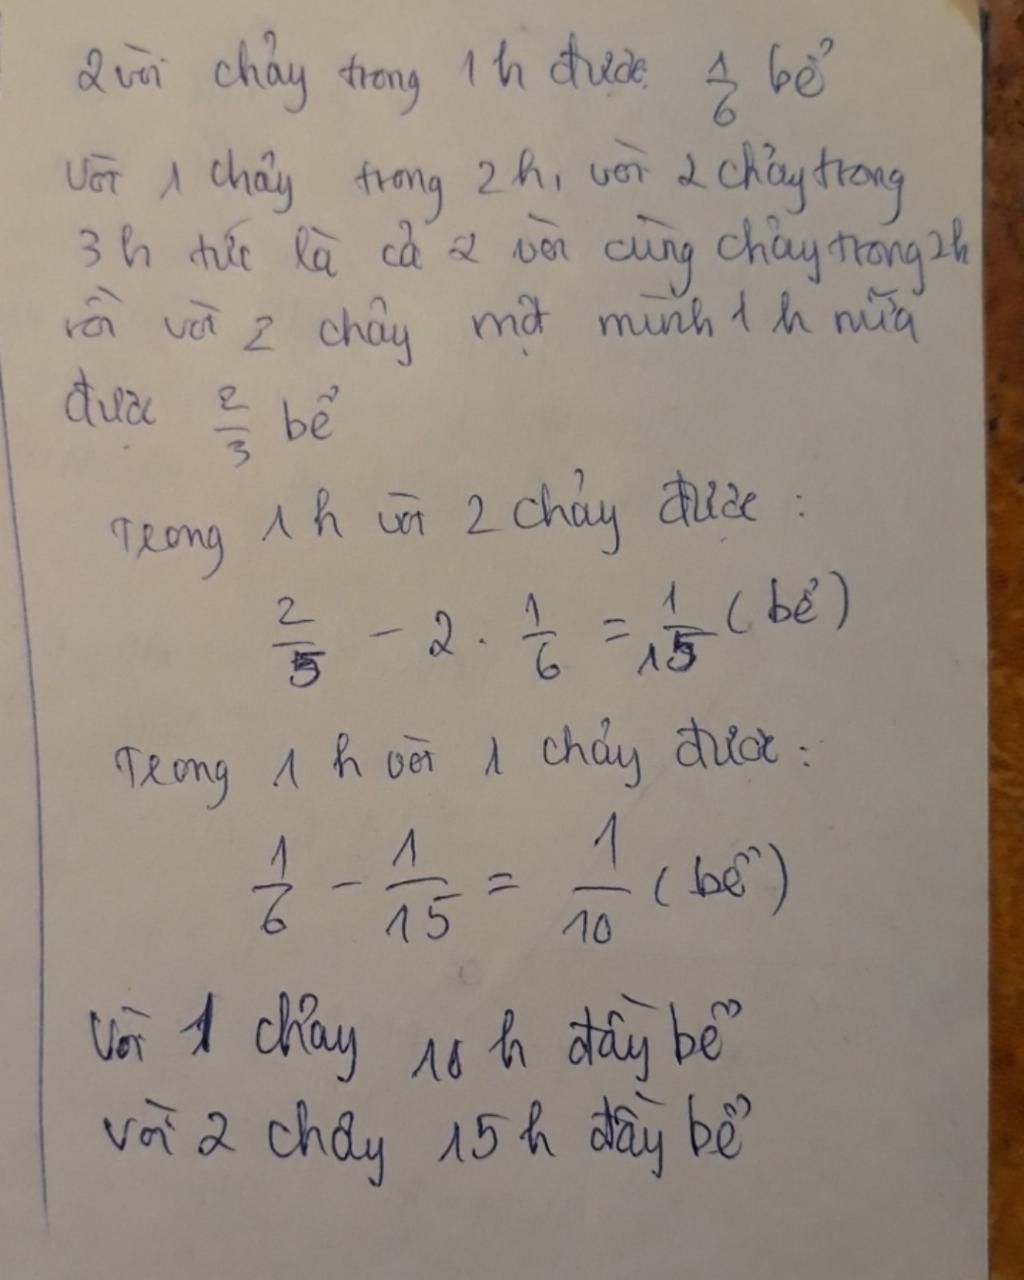 2 vòi chảy trong 1h được 1/6 bể
Vòi 1 chảy trong 2h, vòi 2 chảy trong
3h tức là cả 2 vòi cùng chảy trong 2h
rồi vòi 2 chảy một mình 1h nữa
được 2/3 bể
Trong 1h vòi 2 chảy được:
2/5 - 2 . 1/6 = 1/15 (bể)
Trong 1h vòi 1 chảy được:
1/6 - 1/15 = 1/10 (bể)
Vòi 1 chảy 10h đầy bể
vòi 2 chảy 15h đầy bể